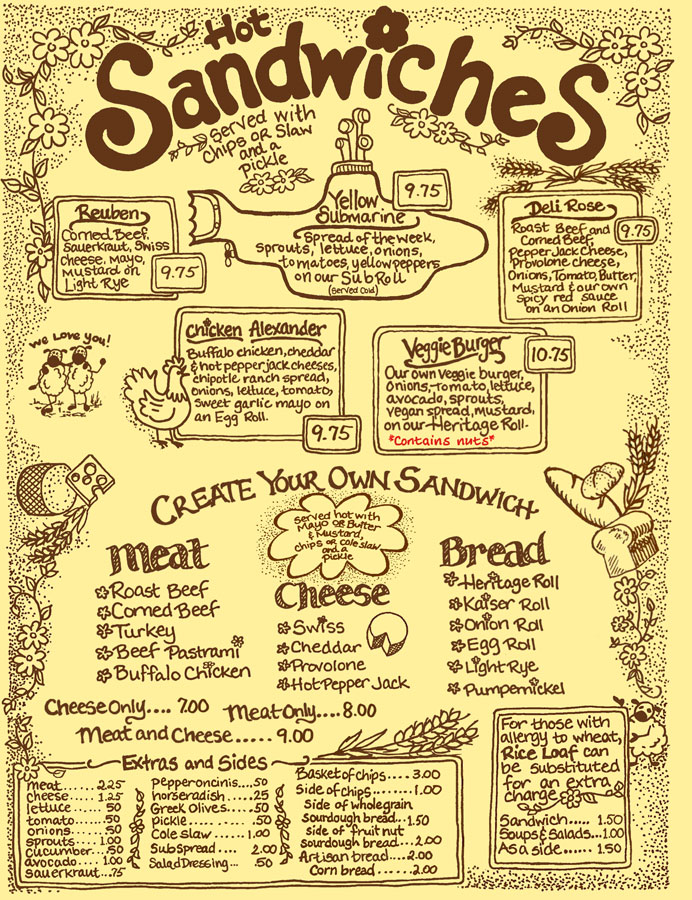 Hot
Sandwiches
served with
chips or slaw
and a
pickle
Reuben
Corned Beef,
Sauerkraut, Swiss
Cheese, Mayo,
Mustard on
Light Rye
9.75
Yellow
Submarine
9.75
Spread of the week,
sprouts, lettuce, onions,
tomatoes, yellow peppers
on our Sub Roll
(Served Cold)
Deli Rose
9.75
Roast Beef and
Corned Beef,
Pepper Jack Cheese,
Provolone cheese,
Onions, Tomato, Butter,
Mustard & our own
spicy red sauce
on an Onion Roll
We Love You!
Chicken Alexander
Buffalo chicken, cheddar
& hot pepper jack cheeses,
chipotle ranch spread,
onions, lettuce, tomato,
sweet garlic mayo on
an Egg Roll.
9.75
Veggie Burger
10.75
Our own veggie burger,
onions, tomato, lettuce,
avocado, sprouts,
vegan spread, mustard,
on our Heritage Roll.
*Contains nuts*
Create Your Own Sandwich
served hot with
Mayo or Butter
& Mustard,
chips or cole slaw
and a
pickle
Meat
Roast Beef
Corned Beef
Turkey
Beef Pastrami
Buffalo Chicken
Cheese
Swiss
Cheddar
Provolone
Hot Pepper Jack
Bread
Heritage Roll
Kaiser Roll
Onion Roll
Egg Roll
Light Rye
Pumpernickel
Cheese Only.... 7.00 Meat Only.... 8.00
Meat and Cheese..... 9.00
Extras and Sides
meat...... 2.25
cheese.... 1.25
lettuce..... .50
tomato..... .50
onions..... .50
sprouts.... 1.00
cucumber.. .50
avocado.... 1.00
sauerkraut... .75
pepperoncinis.... .50
horseradish..... .25
Greek Olives..... .50
pickle........... .50
Cole slaw..... 1.00
Sub spread.... 2.00
Salad Dressing... .50
Basket of chips.... 3.00
Side of chips....... 1.00
Side of wholegrain
sourdough bread... 1.50
side of fruit nut
sourdough bread... 2.00
Artisan bread.... 2.00
Corn bread...... 2.00
For those with
allergy to wheat,
Rice Loaf can
be substituted
for an extra
charge
Sandwich..... 1.50
Soups & Salads... 1.00
As a side...... 1.50